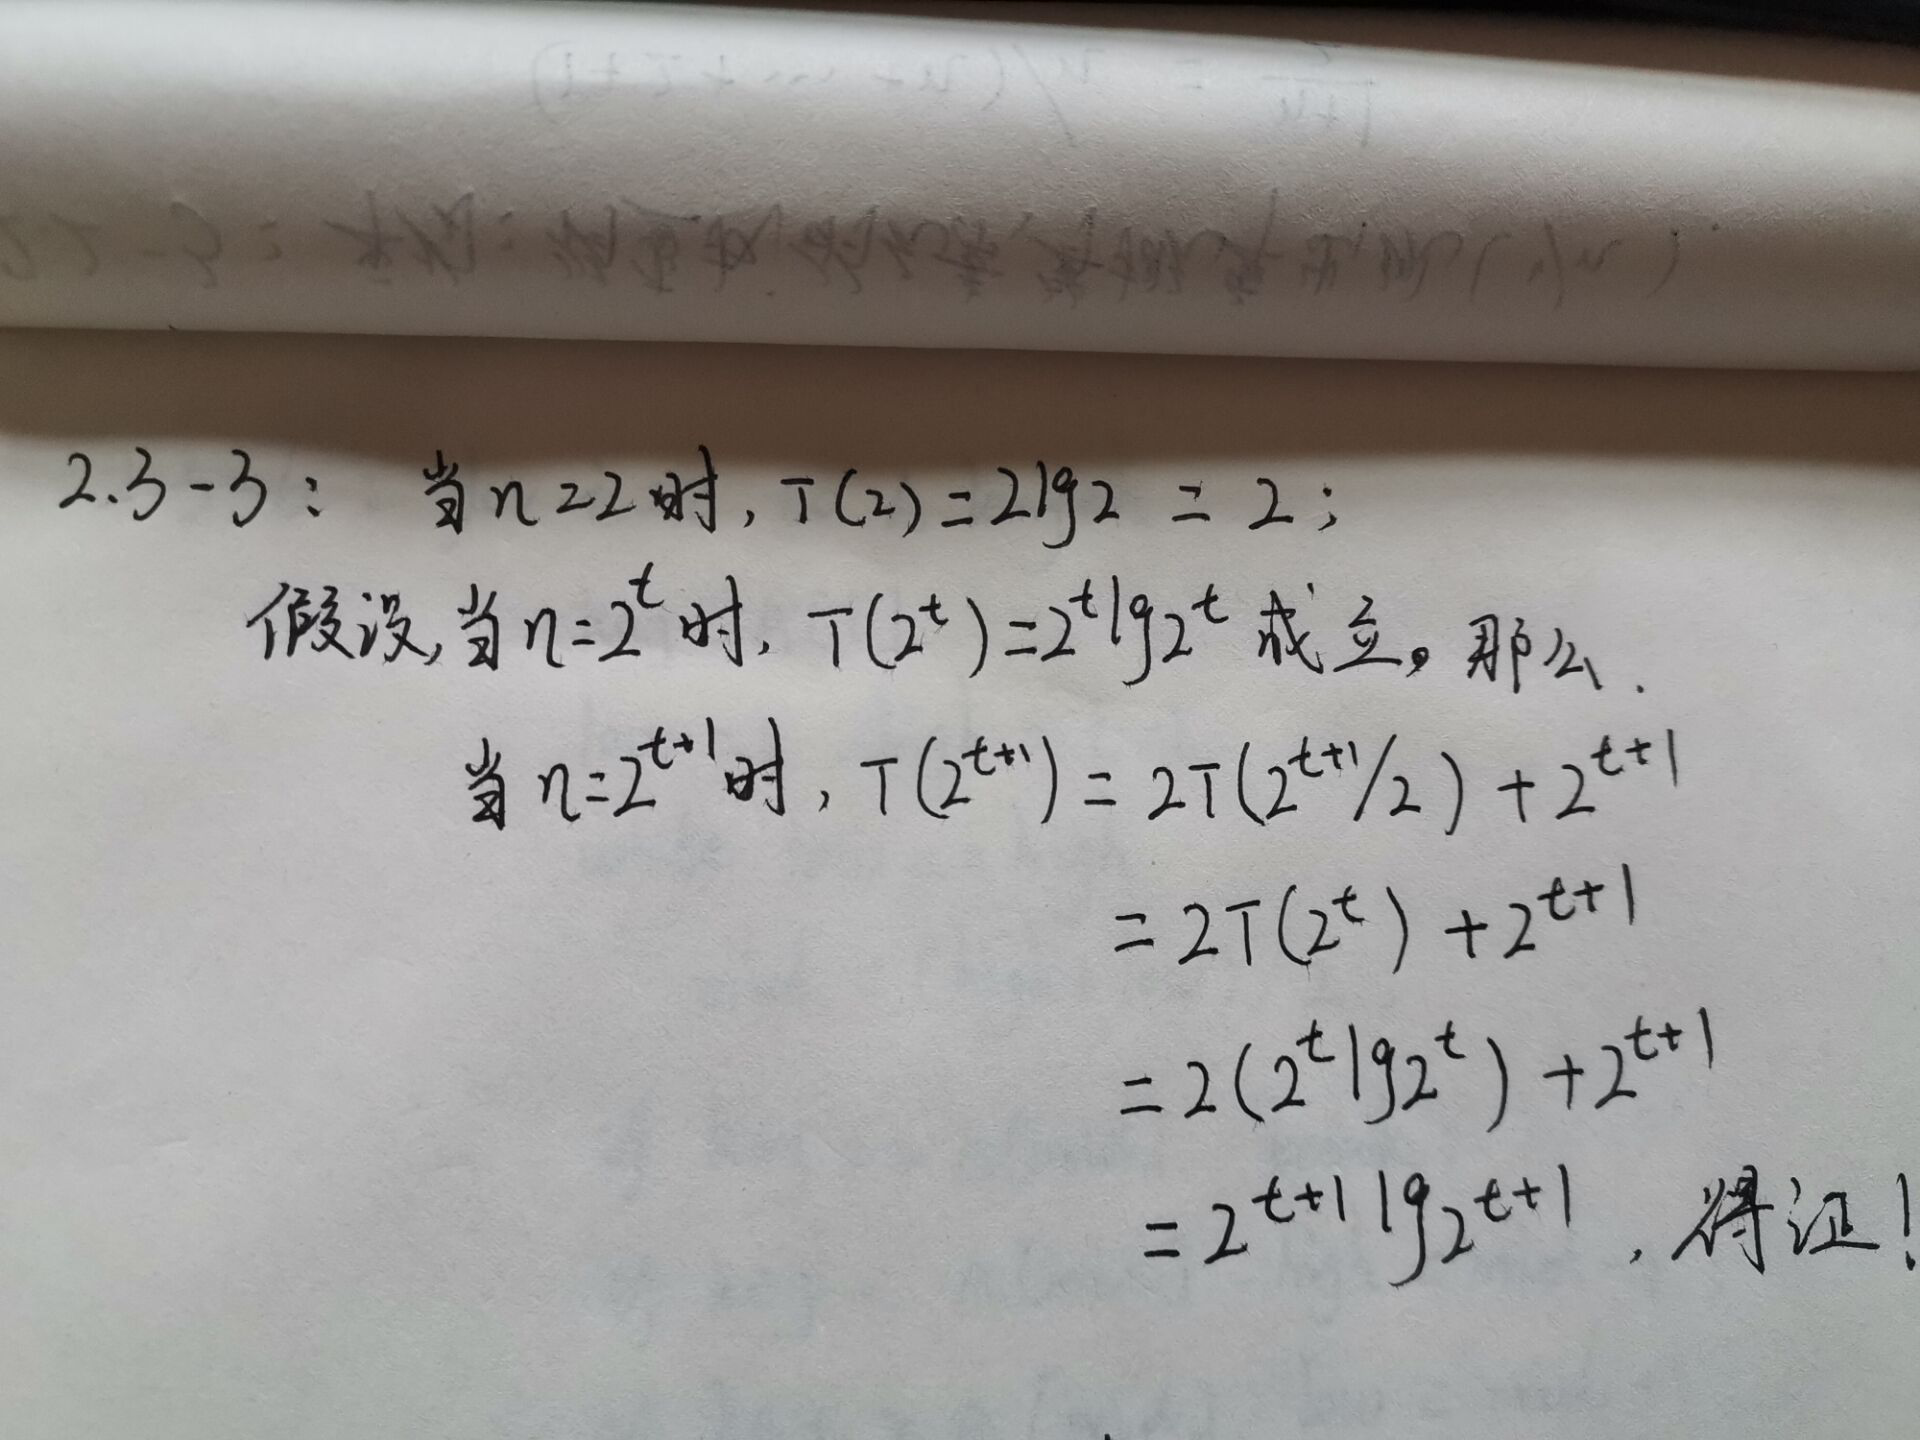 2.3-3: 当n=2时,T(2)=2lg2 = 2;
假设,当n=2^t时,T(2^t)=2^t lg2^t 成立。那么.
当n=2^{t+1}时,T(2^{t+1}) = 2T(2^{t+1}/2) + 2^{t+1}
= 2T(2^t) + 2^{t+1}
= 2(2^t lg2^t) + 2^{t+1}
= 2^{t+1} lg2^{t+1},得证!